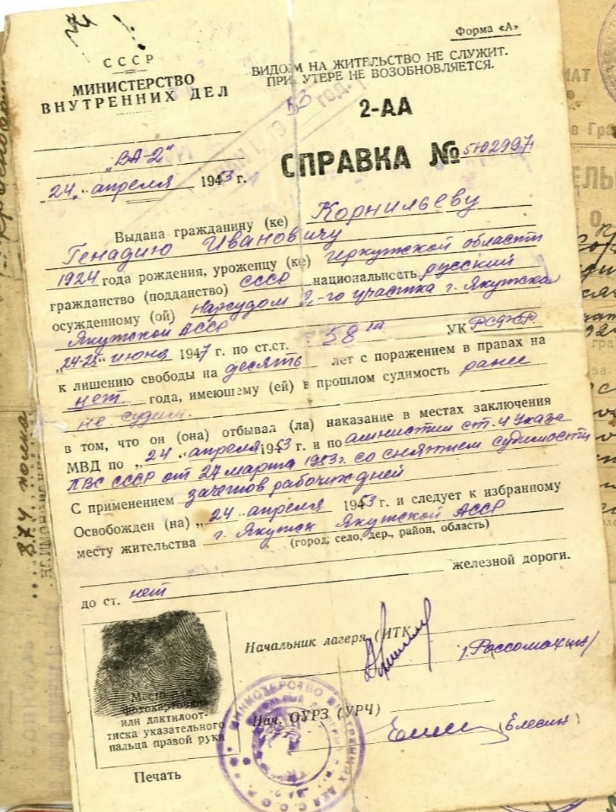 Форма «А»
СССР
МИНИСТЕРСТВО
ВНУТРЕННИХ ДЕЛ
ВИДОМ НА ЖИТЕЛЬСТВО НЕ СЛУЖИТ.
ПРИ УТЕРЕ НЕ ВОЗОБНОВЛЯЕТСЯ.
2-АА
СПРАВКА № 5102997
„ВА-2“
„24„ апреля 1953 г.
Выдана гражданину (ке) Корнильеву
Генадию Ивановичу
1924 года рождения, уроженцу (ке) Иркутской области
гражданство (подданство) СССР национальность русский
осужденному (ой) Нарсудом 2-го участка г. Якутска
Якутской АССР
„24-25„ июня 1947 г. по ст.ст. 58 УК РСФСР
к лишению свободы на десять лет с поражением в правах на
нет года, имеющему (ей) в прошлом судимость ранее
не судим.
в том, что он (она) отбывал (ла) наказание в местах заключения
МВД по „24„ апреля 1953 г. и по амнистии ст. 4 Указа
ПВС СССР от 27 марта 1953 г. со снятием судимости
С применением зачетов рабочих дней
Освобожден (на) „24„ апреля 1953 г. и следует к избранному
месту жительства г. Якутск Якутской АССР
(город, село, дер., район, область)
железной дороги.
до ст. нет
Начальник лагеря (ИТК
(Рассомахин)
Место для
фотокарточки
или дактилоот-
тиска указательного
пальца правой руки
Нач. ОУРЗ (УРЧ)
(Елесин)
Печать
МИНИСТЕРСТВО ВНУТРЕННИХ ДЕЛ СССР